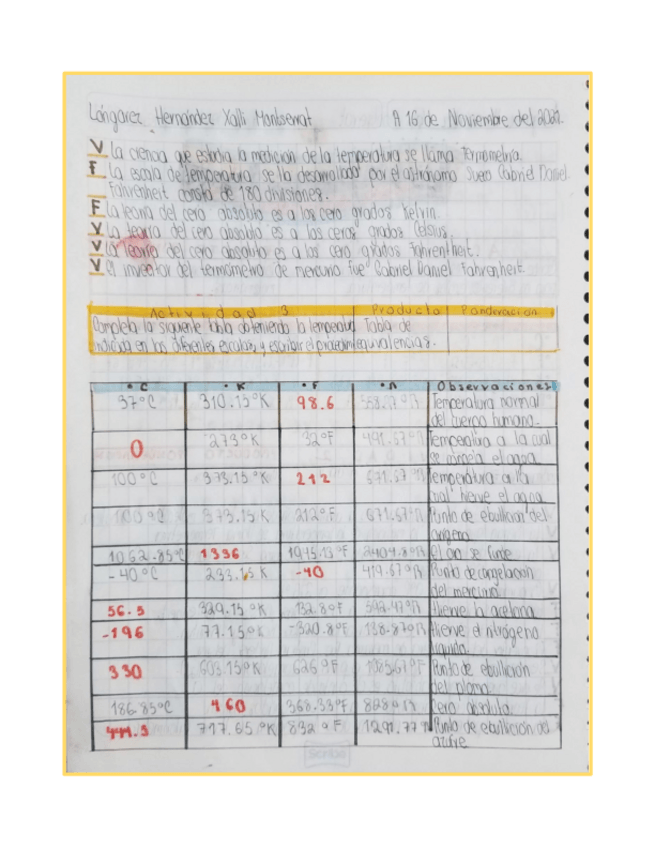 Lóngarez Hernández Xalli Montserrat A 16 de Noviembre del 2021.
V La ciencia que estudia la medición de la temperatura se llama Termometría.
F La escala de temperatura se la desarrollado por el astrónomo Sueco Gabriel Daniel
Fahrenheit consta de 180 divisiones.
F La teoría del cero absoluto es a los cero grados Kelvin.
V La teoría del cero absoluto es a los ceros grados Celsius.
V La teoría del cero absoluto es a los cero grados Fahrenheit.
V El inventor del termómetro de mercurio fue Gabriel Daniel Fahrenheit.
Actividad 3 Producto Ponderación
Completa la siguiente tabla obteniendo la temperatura Tabla de
indicada en las diferentes escalas, y escribir el procedim equivalencias.
°C °K °F °R Observaciones
37°C 310.15°K 98.6 Temperatura normal
del cuerpo humano.
0 273°K 32°F 491.67°R Temperatura a la cual
se congela el agua
100°C 373.15°K 212 671.67°R Temperatura a la
cual hierve el agua
100°C 373.15K 212°F 671.67°R Punto de ebullición del
1062.85°C 1336 1945.13°F 2404.8°R El oro se funde
-40°C 233.15K -40 419.67°R Punto de congelación
del mercurio
56.5 329.15°K 132.8°F 592.47°R Hierve la acetona
-196 77.15°K -320.8°F 138.87°R Hierve el nitrógeno
líquido.
330 603.15°K 626°F Punto de ebullición
del plomo
186.85°C 460 368.33°F 828°R Cero absoluto
444.5 717.65°K 832°F 1291.77°R Punto de ebullición del
azufre
Scribe